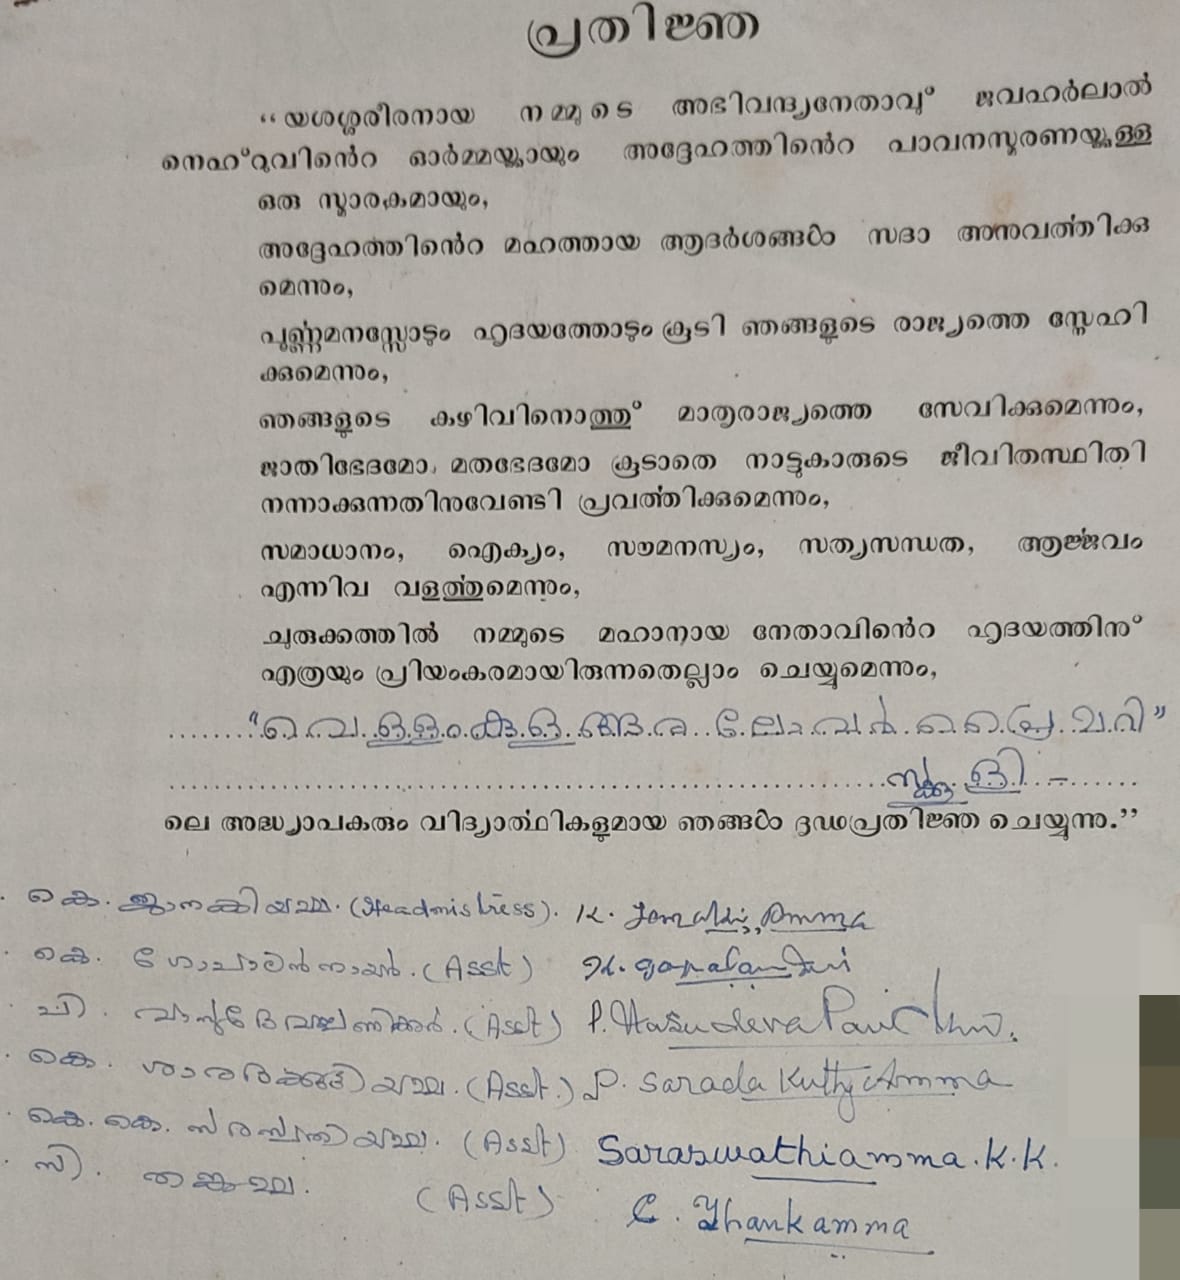 പ്രതിജ്ഞ
,, യശഃശരീരനായ നമ്മുടെ അഭിവന്ദ്യനേതാവ് ജവഹർലാൽ
നെഹ്റുവിന്റെ അദ്ദേഹത്തിന്റെ പാവനസ്മരണയ്ക്കുള്ള
ഒരു സ്മാരകമായും,
അദ്ദേഹത്തിന്റെ മഹത്തായ ആദർശങ്ങൾ സദാ അനുവർത്തിക്കു
മെന്നും,
ഞങ്ങളുടെ രാജ്യത്തെ സ്നേഹി
ക്കുമെന്നും,
ഞങ്ങളുടെ കഴിവിനൊത്ത് മാതൃരാജ്യത്തെ സേവിക്കുമെന്നും,
ജാതിഭേദമോ മതഭേദമോ കൂടാതെ നാട്ടുകാരുടെ ജീവിതസ്ഥിതി
നന്നാക്കുന്നതിനുവേണ്ടി പ്രവർത്തിക്കുമെന്നും,
സമാധാനം, ഐക്യം, സൌമനസ്യം, സത്യസന്ധത, ആർജ്ജവം
എന്നിവ വളർത്തുമെന്നും,
ചുരുക്കത്തിൽ നമ്മുടെ മഹാനായ നേതാവിന്റെ ഹൃദയത്തിനു്
എത്രയും പ്രിയംകരമായിരുന്നതെല്ലാം ചെയ്യുമെന്നും,
"വെള്ളംകുളങ്ങര ലോവർ പ്രൈമറി"
സ്ക്കൂളി –
ലെ അദ്ധ്യാപകരും വിദ്യാർത്ഥികളുമായ ഞങ്ങൾ ദൃഢപ്രതിജ്ഞ ചെയ്യുന്നു.''
കെ. ജാനകിയമ്മ. (Headmistress). K. Janaki Amma
കെ. ഗോപാലൻനായർ. (Asst) K. Gopalan Nair
പി. വാസുദേവപ്പണിക്കർ. (Asst) P. Vasudeva Panicker.
കെ. ശാരദക്കുട്ടിയമ്മ. (Asst.) P. Sarada Kutty Amma
കെ. കെ. സരസ്വതിയമ്മ. (Asst) Saraswathiamma. K. K.
സി. തങ്കമ്മ. (Asst) C. Thankamma